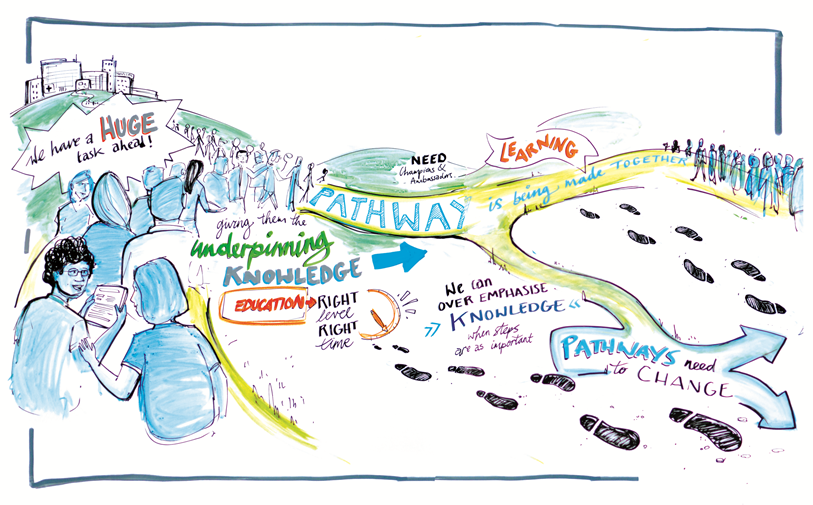 We have a HUGE
task ahead!
NEED
Champions &
Ambassadors
LEARNING
PATHWAY is being made TOGETHER
giving them the
underpinning
KNOWLEDGE
EDUCATION
RIGHT
level
RIGHT
time
We can
OVER EMPHASISE
KNOWLEDGE
when steps
are as important
PATHWAYS need
to CHANGE